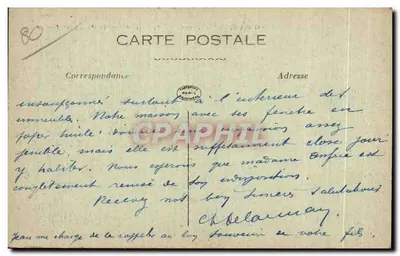 80
CARTE POSTALE
Correspondance
Adresse
insoupçonnés surtout à l'intérieur des
immeubles. Notre maison avec ses fenêtre en
papier huilé assez
pénible, mais elle est suffisamment close pour
y habiter. Nous espérons que madame est
complètement remise de son indisposition.
Recevez nos bons sincères salutations
Ch Delaunay
Jean me charge de le rappeler au bon souvenir de votre fils.
CPAPHIL